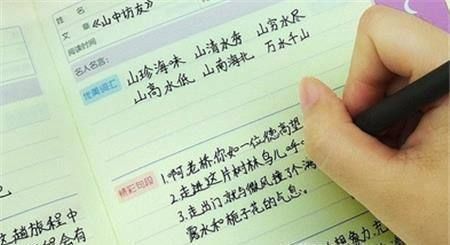 姓名
文章《山中访友》
阅读时间
名人名言:
优美词汇
山珍海味 山清水秀 山穷水尽
山高水低 山南海北 万水千山
精彩句段
1.啊老桥你如一位德高望
2.走进这片树林鸟儿呼
3.走出门就与微风撞了个满
露水和栀子花的气息。
这趟旅程中
会有
想象力